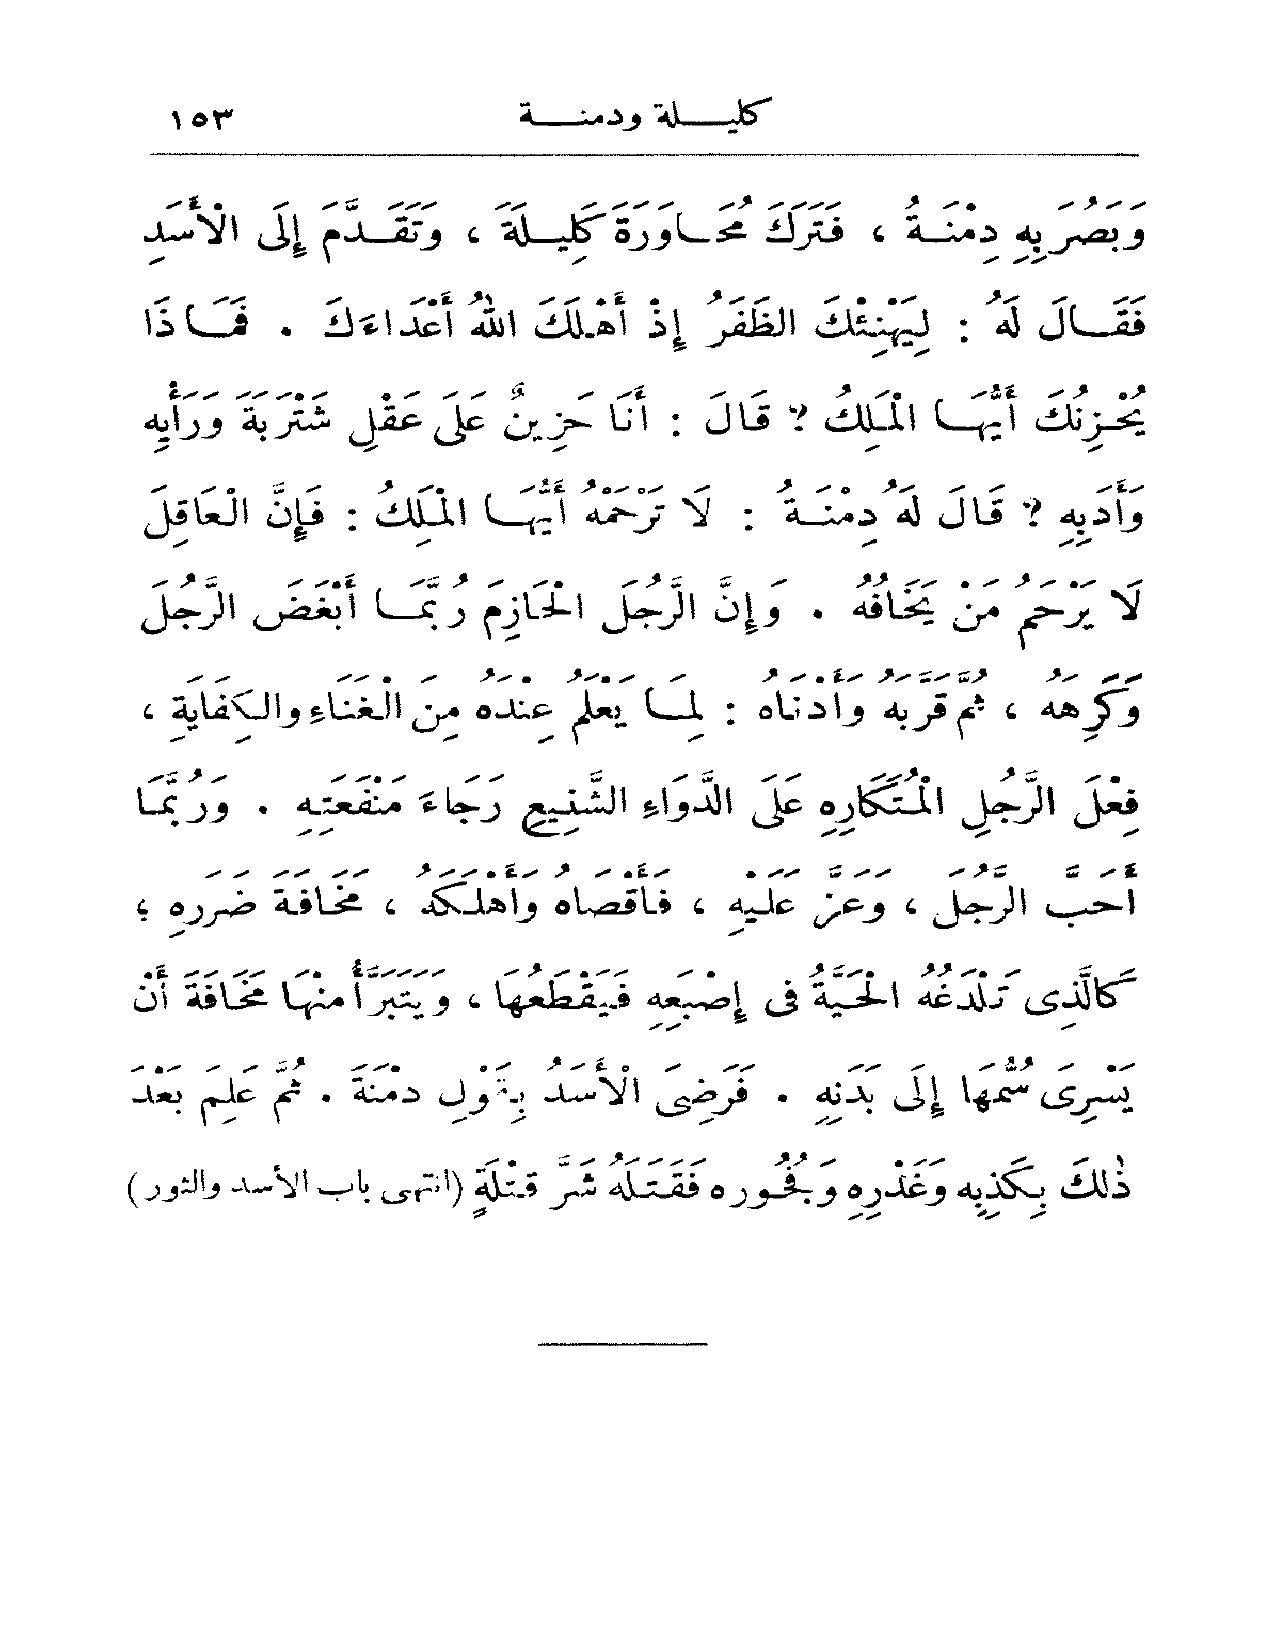 كليلة ودمنة ١٥٣
وَبَصُرَ بِهِ دِمْنَةُ ، فَتَرَكَ مُحَاوَرَةَ كَلِيلَةَ ، وَتَقَدَّمَ إِلَى الْأَسَدِ
فَقَالَ لَهُ : لِيَهْنِئْكَ الظَّفَرُ إِذْ أَهْلَكَ اللهُ أَعْدَاءَكَ . فَمَاذَا
يُحْزِنُكَ أَيُّهَا الْمَلِكُ ؟ قَالَ : أَنَا حَزِينٌ عَلَى عَقْلِ شَتْرَبَةَ وَرَأْيِهِ
وَأَدَبِهِ ؟ قَالَ لَهُ دِمْنَةُ : لَا تَرْحَمْهُ أَيُّهَا الْمَلِكُ : فَإِنَّ الْعَاقِلَ
لَا يَرْحَمُ مَنْ يَخَافُهُ . وَإِنَّ الرَّجُلَ الْحَازِمَ رُبَّمَا أَبْغَضَ الرَّجُلَ
وَكَرِهَهُ ، ثُمَّ قَرَّبَهُ وَأَدْنَاهُ : لِمَا يَعْلَمُ عِنْدَهُ مِنَ الْغَنَاءِ وَالْكِفَايَةِ ،
فِعْلَ الرَّجُلِ الْمُتَكَارِهِ عَلَى الدَّوَاءِ الشَّنِيعِ رَجَاءَ مَنْفَعَتِهِ . وَرُبَّمَا
أَحَبَّ الرَّجُلَ ، وَعَزَّ عَلَيْهِ ، فَأَقْصَاهُ وَأَهْلَكَهُ ، مَخَافَةَ ضَرَرِهِ ؛
كَالَّذِى تَلْدَغُهُ الْحَيَّةُ فِى إِصْبَعِهِ فَيَقْطَعُهَا ، وَيَتَبَرَّأُ مِنْهَا مَخَافَةَ أَنْ
يَسْرِىَ سُمُّهَا إِلَى بَدَنِهِ . فَرَضِىَ الْأَسَدُ بِقَوْلِ دِمْنَةَ . ثُمَّ عَلِمَ بَعْدَ
ذٰلِكَ بِكَذِبِهِ وَغَدْرِهِ وَفُجُورِهِ فَقَتَلَهُ شَرَّ قِتْلَةٍ (انتهى باب الأسد والثور)